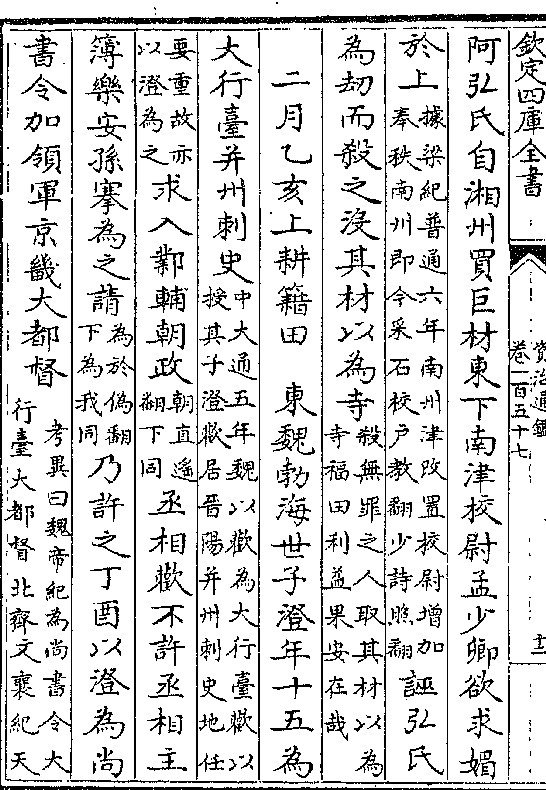 欽定四庫全書
資治通鑑
卷一百五十七
十二
阿弘氏自湘州買巨材東下南津校尉孟少卿欲求媚
於上據梁紀普通六年南州津改置校尉增加
奉秩南州即今采石校戶教翻少詩照翻誣弘氏
為刧而殺之沒其材以為寺殺無罪之人取其材以為
寺福田利益果安在哉
二月乙亥上耕籍田　東魏勃海世子澄年十五為
大行臺并州刺史中大通五年魏以歡為大行臺歡以
授其子澄歡居晉陽并州刺史地任
要重故亦
以澄為之求入鄴輔朝政朝直遙
翻下同丞相歡不許丞相主
簿樂安孫搴為之請為於偽翻
下為我同乃許之丁酉以澄為尚
書令加領軍京畿大都督考異曰魏帝紀為尚書令大
行臺大都督北齊文襄紀天